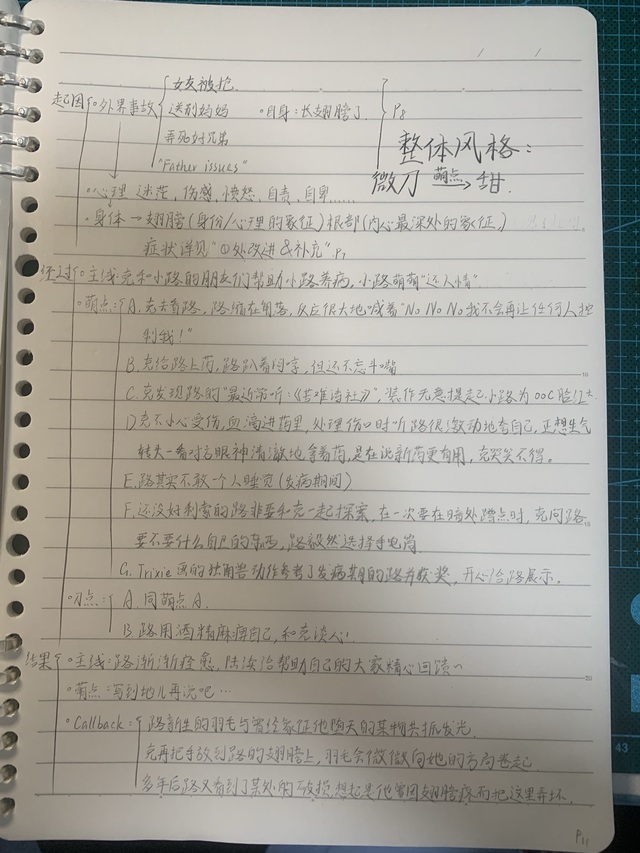 起因 外界事故 女友被抢
送别妈妈 自身:长翅膀了 P8
弄死好兄弟
"Father issues"
整体风格:
微刀 萌点→甜.
心理 迷茫,伤感,愤怒,自责,自卑……
身体→翅膀(身份/心理的象征)根部(内心最深处的象征.)
症状详见"①处改进&补充".P7
经过 主线:克和小路的朋友们帮助小路养病,小路萌萌"还人情".
萌点: A.克去看路,路缩在角落,反应很大地喊着"No No No我不会再让任何人控
制我!"
B.克给路上药,路趴着闷哼,但还不忘斗嘴
C.克发现路的"最近常听:《苦难诗社》",装作无意提起.小路为OOC脸红.
D.克不小心受伤,血滴进药里,处理伤口时听路很激动地夸自己,正想生气
转头一看对方眼神清澈地拿着药,是在说新药更有用,克哭笑不得.
E.路其实不敢一个人睡觉(发病期间)
F.还没好利索的路非要和克一起探案,在一次要在暗处蹲点时,克问路
要不要什么自己的东西,路毅然选择手电筒
G.Trixie画的独角兽动作参考了发病期的路并获奖,开心给路展示.
刀点: A.同萌点A.
B.路用酒精麻痹自己,和克谈心
结果 主线:路渐渐痊愈,陆续给帮助自己的大家精心回馈~
萌点:写到地儿再说吧…
Callback: 路新生的羽毛与曾经象征他堕天的某物共振发光
克再把手放到路的翅膀上,羽毛会微微向她的方向卷起
多年后路又看到了某处的破损,想起是他曾因翅膀疼而把这里弄坏.
P11
43